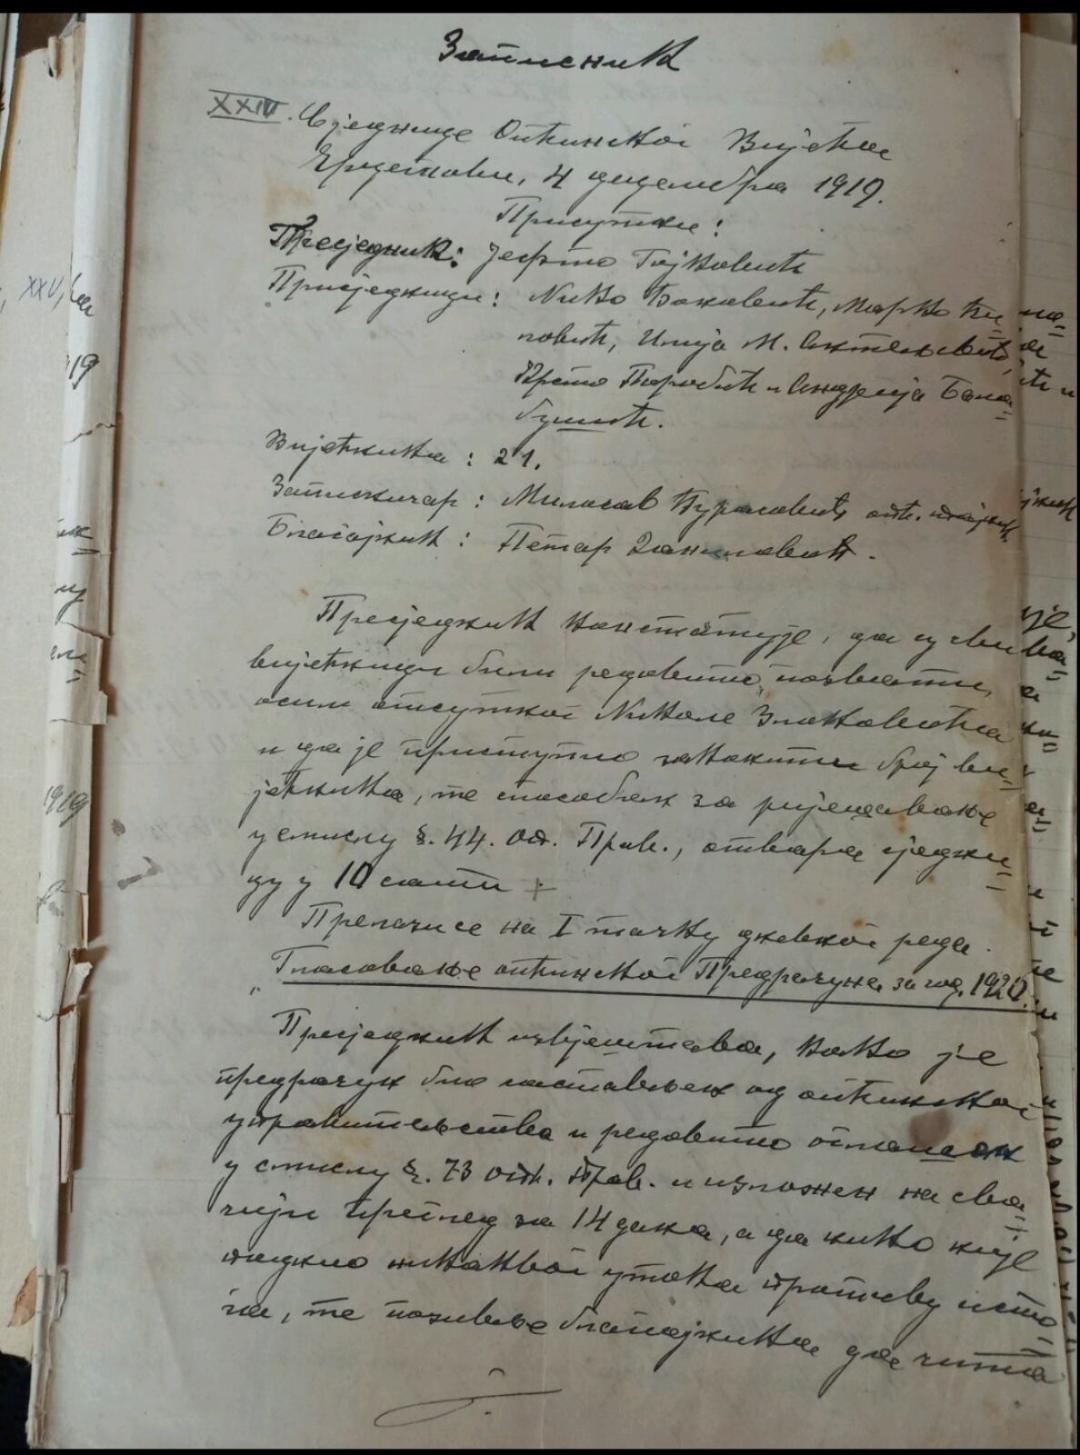 Записник
XXIV. Сједнице Опћинског Вијећа
Ерцегнови, 4 децембра 1919.
Присутни:
Пресједник: Јефто Гојковић
Присједници: Нико Бакавић, Марко Ћи=
повић, Илија М.
Крсто Поробић и Андрија Бала=
бушић.
Вијећника: 21.
Записничар: Милосав Ђурасовић, опћ. тајник.
Благајник: Петар Даниловић.
Пресједник констатује, да су сви
вијећници били редовито позвати,
осим отсутног Николе Злоковића
и да је приступио законити број ви=
јећника, те способан за ријешавање
у смислу §. 44. Оп. Прав., отвара сједни=
цу у 10 сати
Прелази се на I тачку дневног реда.
Гласовање опћинског Предрачуна за год. 1920.
Пресједник извјештава, како је
предрачун био састављен од опћинског
управитељства и редовито огласан
у смислу §. 73 опћ. Прав. и изложен на сва=
чији преглед за 14 дана, а да нико није
поднио никаквог утока противу исто=
га, те позивље благајника да чита
XXV,
19
1919